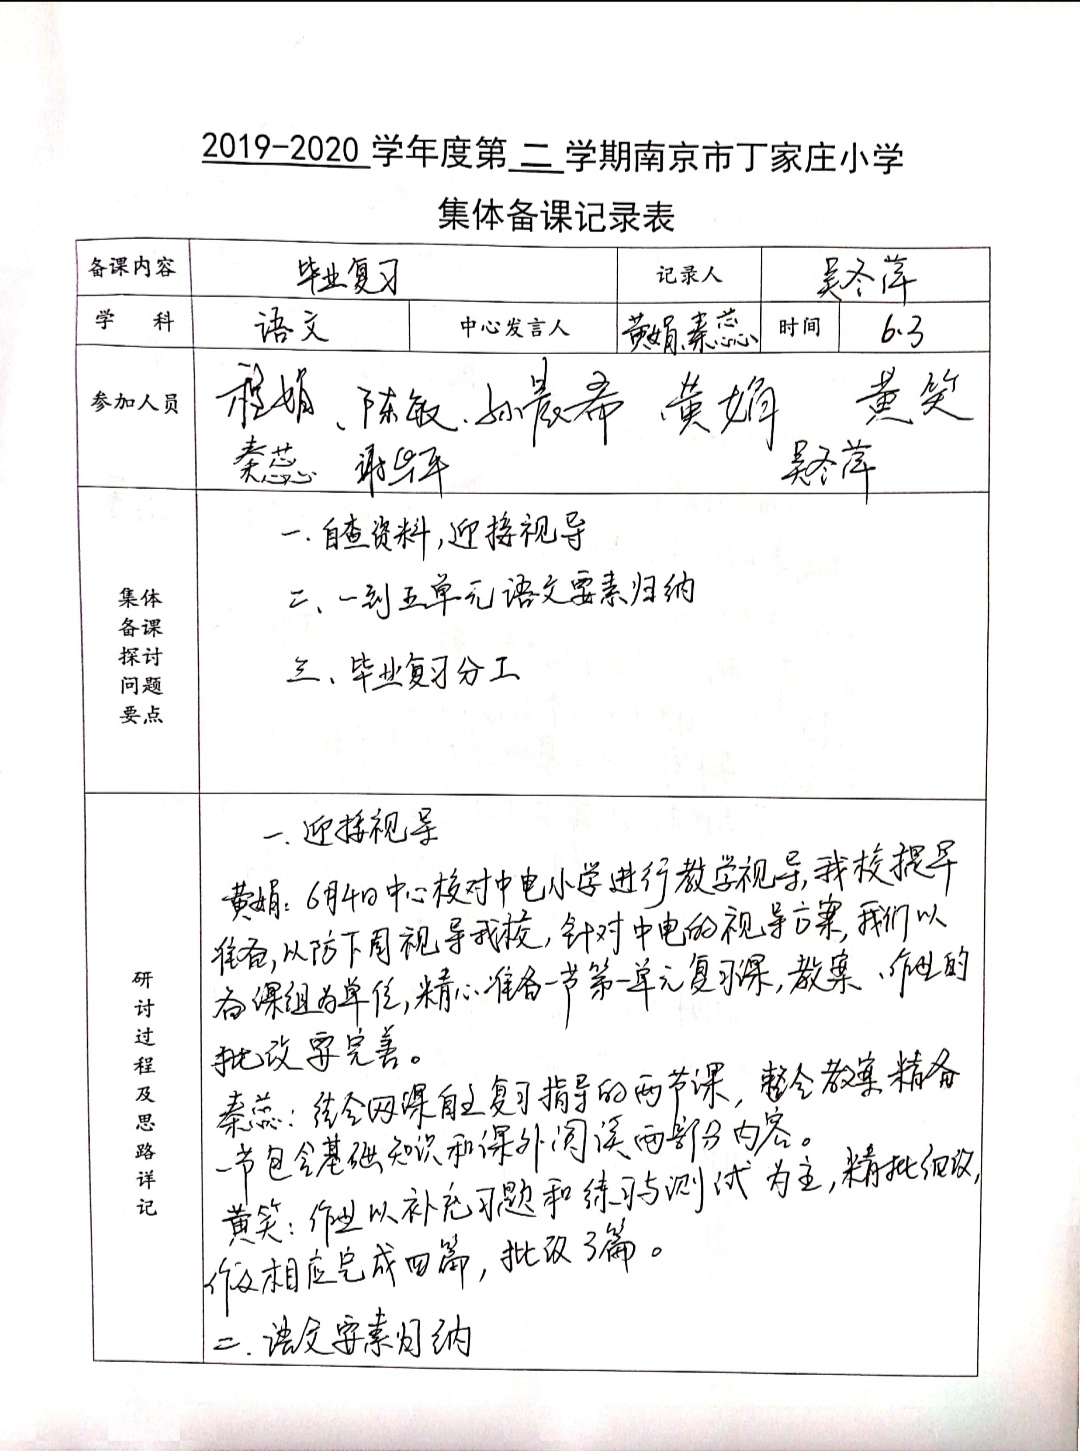 2019-2020 学年度第 二 学期南京市丁家庄小学
集体备课记录表
备课内容 毕业复习 记录人 吴冬萍
学 科 语文 中心发言人 黄娟、秦蕊 时间 6.3
参加人员 程娟、陈敏、孙晨希 黄娟 黄笑
秦蕊 谢华军 吴冬萍
集体
备课
探讨
问题
要点
一、自查资料,迎接视导
二、一到五单元语文要素归纳
三、毕业复习分工
研讨过程及思路详记
一、迎接视导
黄娟:6月4日中心校对中电小学进行教学视导,我校提早
准备,以防下周视导我校,针对中电的视导方案,我们以
备课组为单位,精心准备一节第一单元复习课,教案、作业的
批改要完善。
秦蕊:结合网课自主复习指导的两节课,整合教案精备
一节包含基础知识和课外阅读两部分内容。
黄笑:作业以补充习题和练习与测试为主,精批细改,
作文相应完成四篇,批改3篇。
二、语文要素归纳